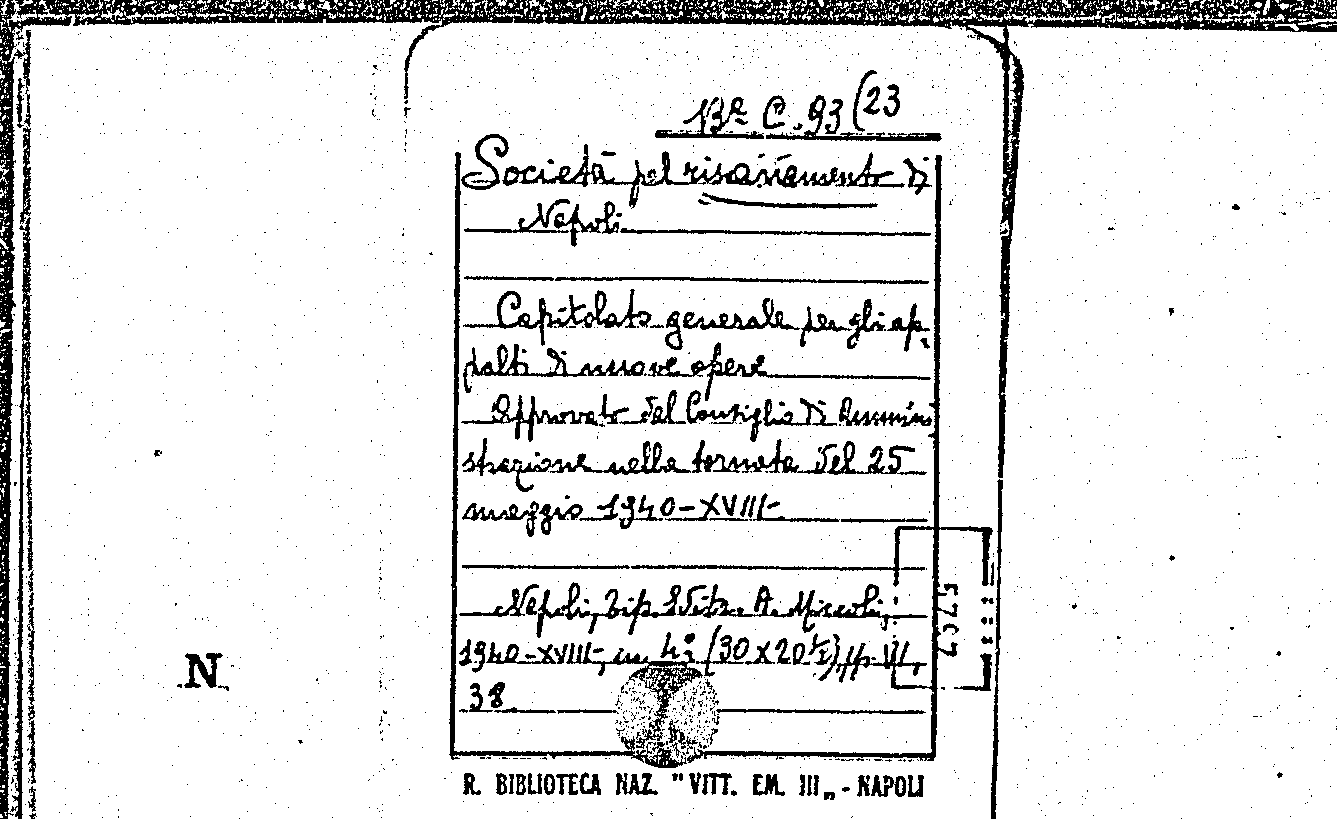 Bª C. 93 (23
Società pel risanamento di
Napoli
Capitolato generale per gli ap-
palti di nuove opere
Approvato dal Consiglio di Ammini
strazione nella tornata del 25
maggio 1940-XVIII-
Napoli, Tip. A. Miccoli,
1940-XVIII-, in 4° (30 x 20½), pp. VII,
38
N
R. BIBLIOTECA NAZ. "VITT. EM. III„ - NAPOLI